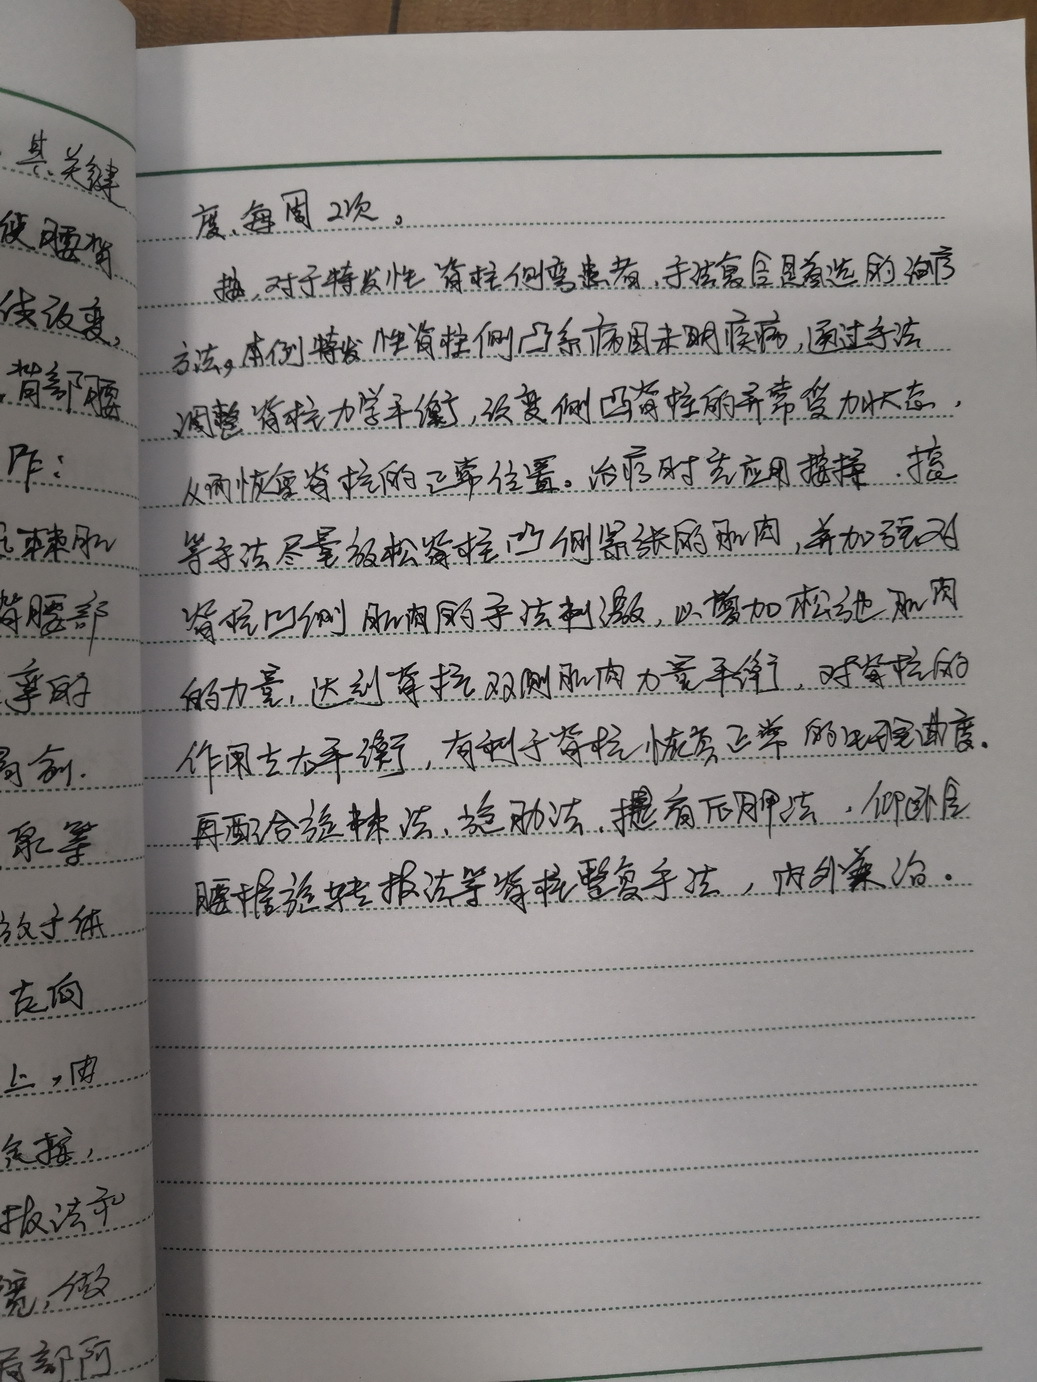 其关键
使腰背
线改变,
背部腰
阼:
棘肌
背腰部
率的
局部.
取等
放于体
左向
上,由
按,
扳法和
宽,做
局部阿
度、每周2次。
按,对于特发性脊柱侧弯患者,手法复合是首选的治疗
方法。本例特发性脊柱侧凸系病因未明疾病,通过手法
调整脊柱力学平衡,改变侧凸脊柱的异常受力状态,
从而恢复脊柱的正常位置。治疗时先应用按揉、㨰
等手法尽量放松脊柱凸侧紧张的肌肉,并加强对
脊柱凹侧肌肉的手法刺激,以增加松弛肌肉
的力量,达到脊柱双侧肌肉力量平衡,对脊柱的
作用去大平衡,有利于脊柱恢复正常的生理曲度.
再配合旋棘法、旋肋法、提肩压胛法、仰卧
腰椎旋转扳法等脊柱整复手法,内外兼治.